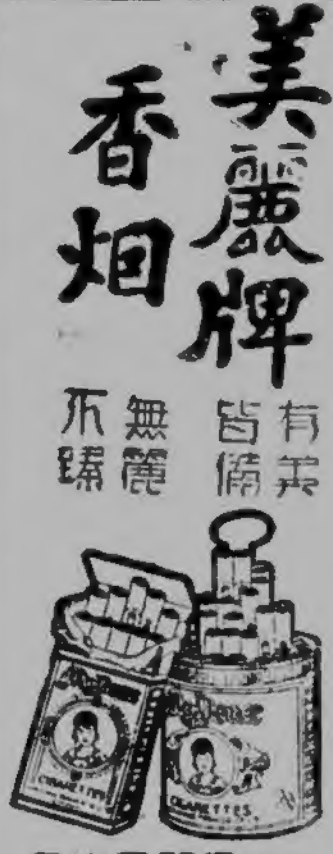 美麗牌
香烟
有美
皆備
無麗
不臻
CIGARETTES
CIGARETTES